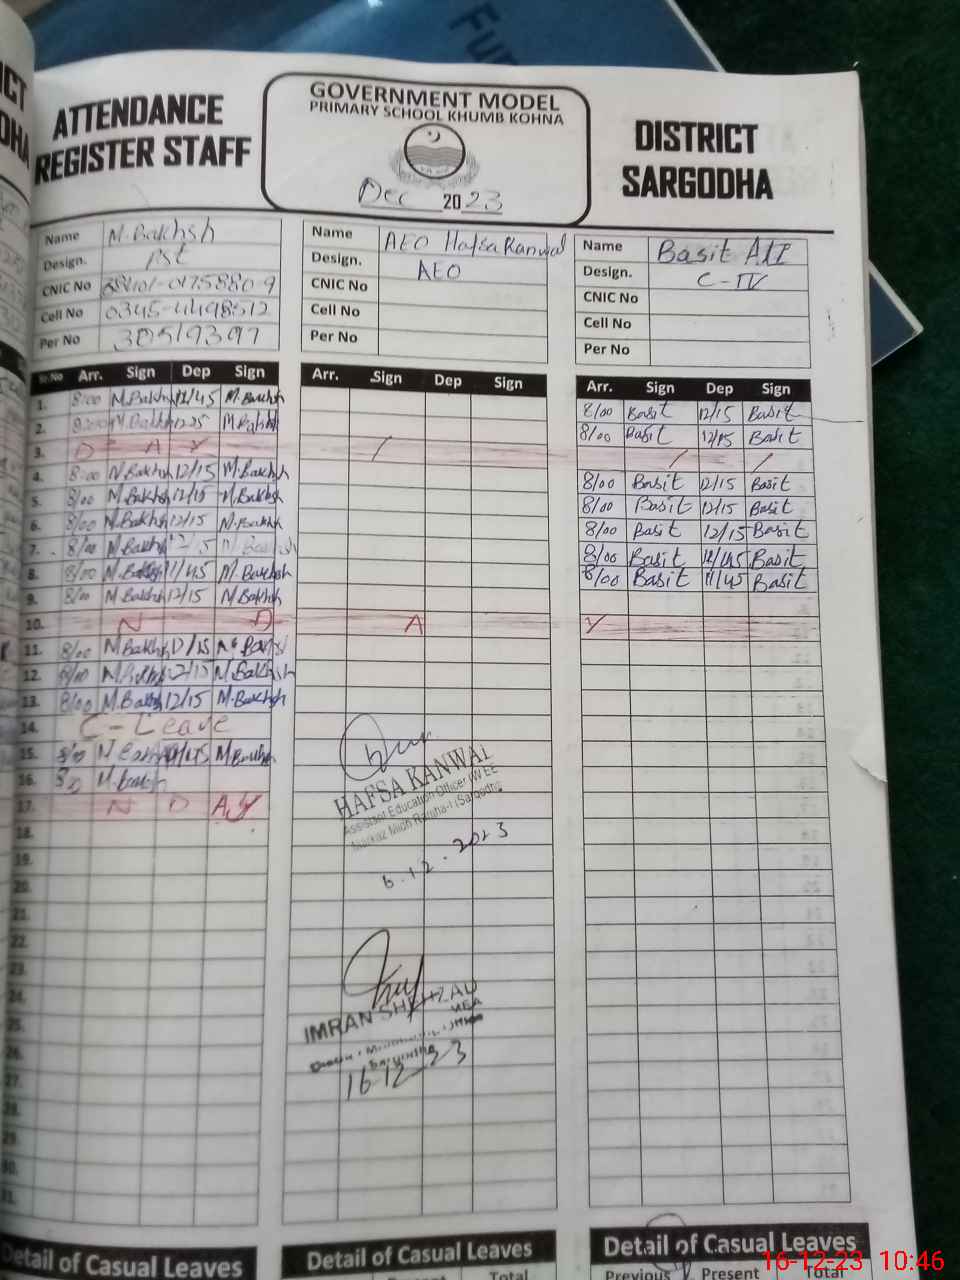 Fun
ICT
ODHA
ATTENDANCE
REGISTER STAFF
GOVERNMENT MODEL
PRIMARY SCHOOL KHUMB KOHNA
Dec 2023
DISTRICT
SARGODHA
Name M.Bakhsh
Design. PST
CNIC No
Cell No 0345-4498512
Per No 30519397
Name AEO Hafsa Kanwal
Design. AEO
CNIC No
Cell No
Per No
Name Basit Ali
Design. C-IV
CNIC No
Cell No
Per No
Sr.No Arr. Sign Dep Sign
Arr. Sign Dep Sign
Arr. Sign Dep Sign
1. 8/00 M.Bakhsh 11/45 M.Bakhsh 8/00 Basit 12/15 Basit
2. M.Bakhsh M.Bakhsh 8/00 Basit 12/15 Basit
3. D A Y / / /
4. 8:00 M.Bakhsh 12/15 M.Bakhsh 8/00 Basit 12/15 Basit
5. 8/00 M.Bakhsh 12/15 M.Bakhsh 8/00 Basit 12/15 Basit
6. 8/00 M.Bakhsh 12/15 M.Bakhsh 8/00 Basit 12/15 Basit
7. 8/00 M.Bakhsh M.Bakhsh 8/00 Basit Basit
8. 8/00 M.Bakhsh 11/45 M.Bakhsh 8/00 Basit 11/45 Basit
9. 8/00 M.Bakhsh 12/15 M.Bakhsh
10. N D A Y
11. 8/00 M.Bakhsh 12/15
12. 8/00 12/15 M.Bakhsh
13. 8/00 M.Bakhsh 12/15 M.Bakhsh
14. C-Leave
15. 8/00 11/45 M.Bakhsh
16. M.Bakhsh
17. N D A Y
18.
19.
20.
21.
22.
23.
24.
25.
26.
27.
28.
29.
30.
31.
HAFSA KANWAL
Assistant Education Officer (W-EE
Markaz Mich Ranjha-I (Sargodha
6.12.2023
IMRAN SHEHZAD
MEA
16-12-23
Detail of Casual Leaves
Detail of Casual Leaves
Detail of Casual Leaves
Present Total
Previous Present Total
16-12-23 10:46